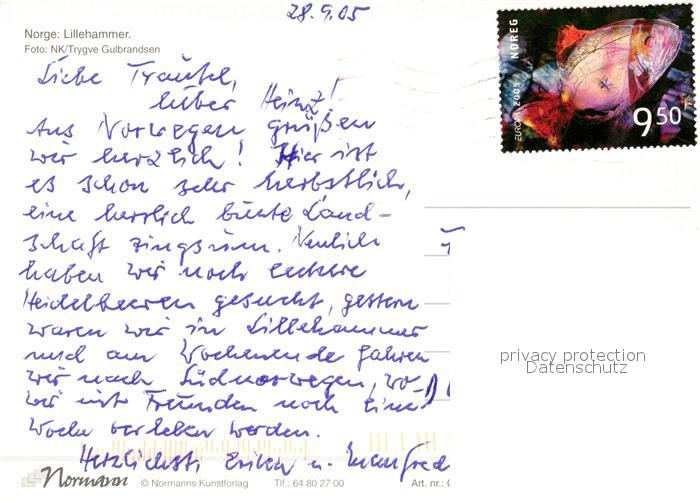 28.9.05
Norge: Lillehammer.
Foto: NK/Trygve Gulbrandsen
NOREG
EUROPA 2005
9 50
Liebe Trautel,
lieber Heinz!
Aus Norwegen grüßen
wir herzlich! Hier ist
es schon sehr herbstlich,
eine herrlich bunte Land-
schaft ringsum. Neulich
haben wir noch leckere
Heidelbeeren gesucht, gestern
waren wir in Lillehammer
und am Wochenende fahren
wir nach Südnorwegen, wo
wir mit Freunden noch eine
Woche verleben werden.
Herzlichst Erika u. Manfred
privacy protection
Datenschutz
Normann
© Normanns Kunstforlag Tlf.: 64 80 27 00 Art. nr.: